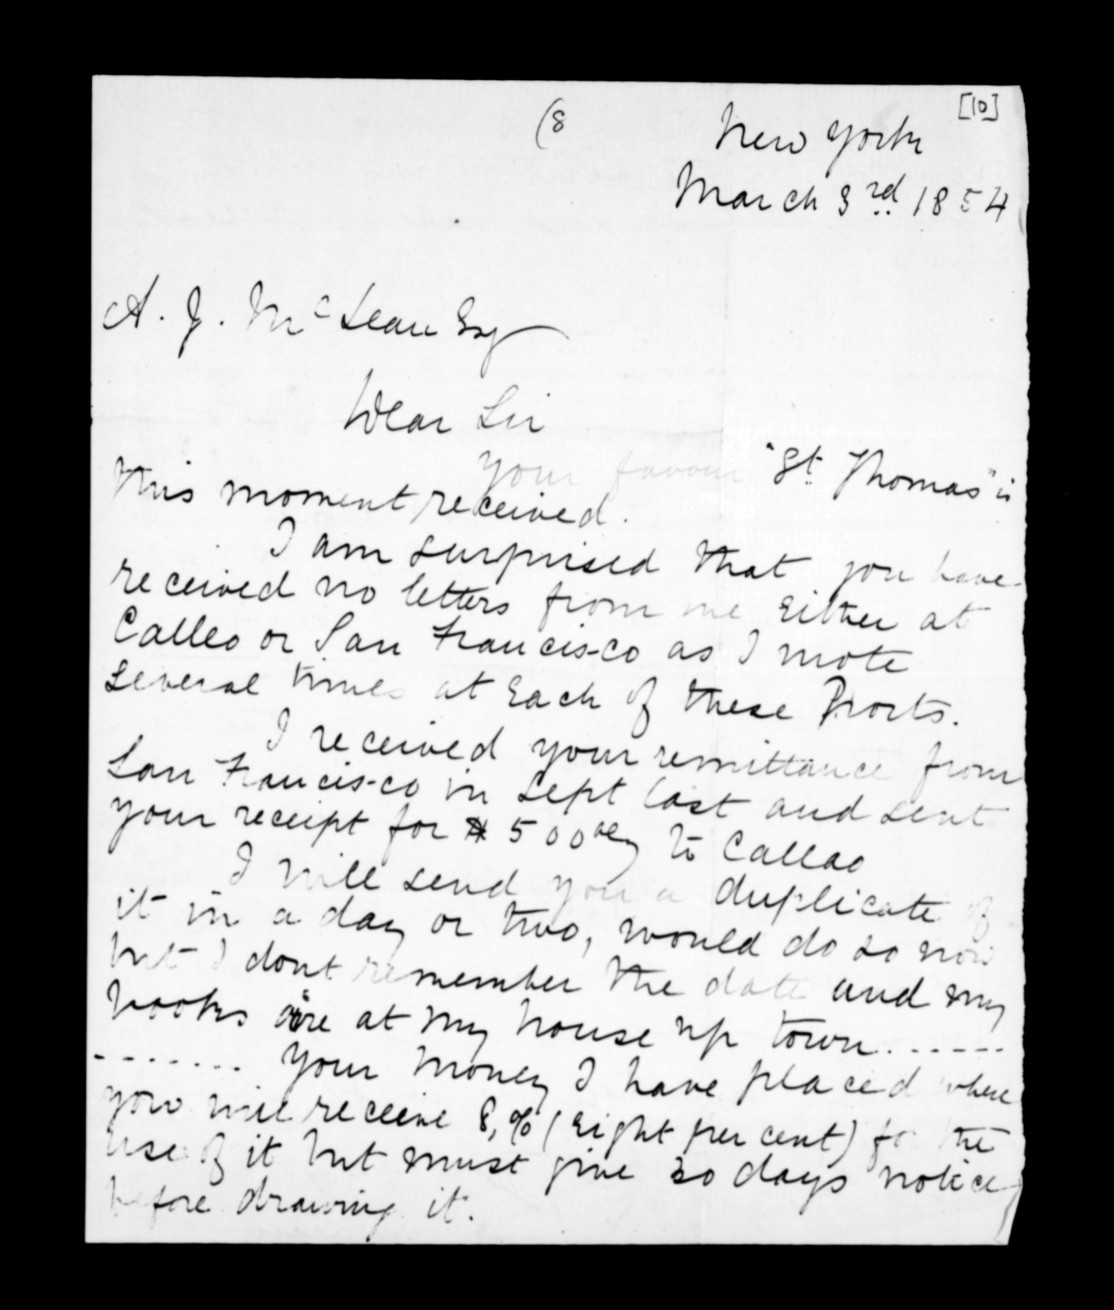 (8
[10]
New York
March 3rd 1854
A. J. McLean Esq
Dear Sir
Your favour "St. Thomas" is
this moment received.
I am surprised that you have
received no letters from me either at
Calleo or San Francisco as I wrote
several times at each of these Ports.
I received your remittance from
San Francisco in Sept last and sent
your receipt for $500 to Callao
I will send you a duplicate of
it in a day or two, would do so now
but I dont remember the date and my
books are at my house up town......
....... Your money I have placed where
you will receive 8,% (eight per cent) for the
use of it but must give 30 days notice
before drawing it.